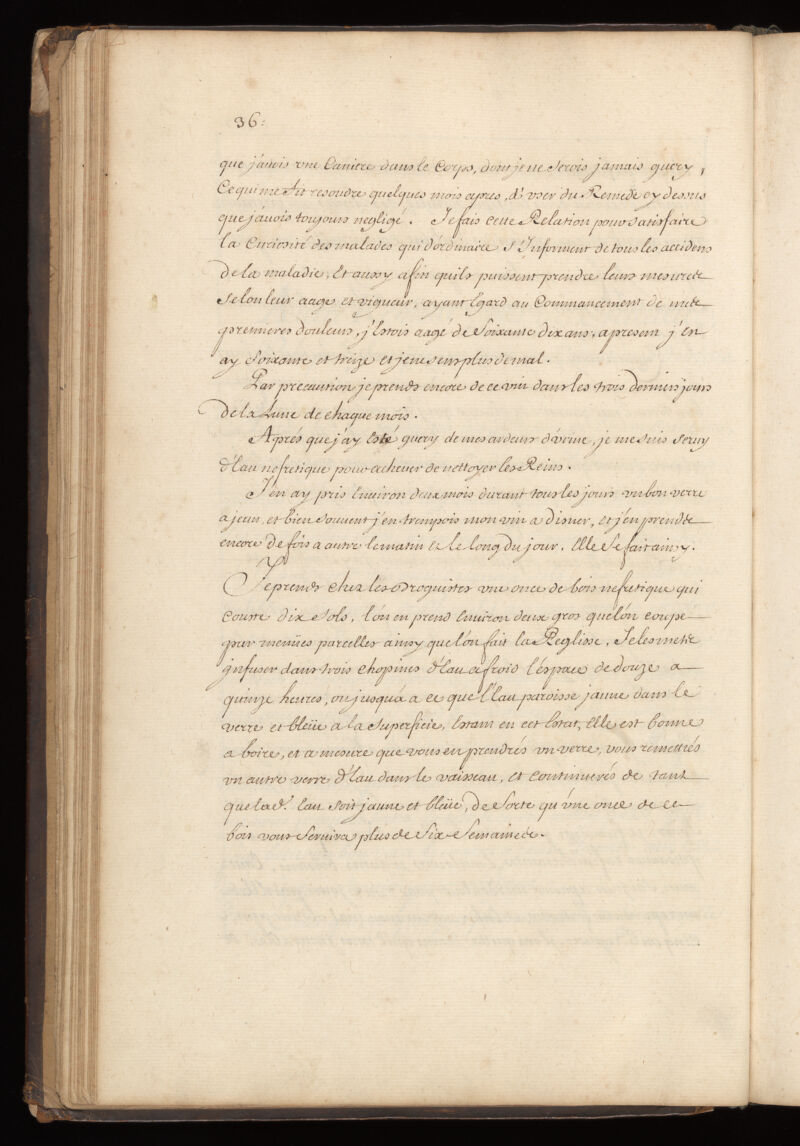 36:
que j'auois vne Caniere dans le Corps, dont je ne serois jamais guery,
Ce qui me fit resoudre quelques mois apres, d'vser du Remede cy dessus
que j'auois toujours negligé. Je fais cette Relation pour satisfaire
la Curiosité des malades qui d'ordinaire s'Informent de tous les accidens
de la maladie, Et aussy afin quils puissent prendre leurs mesures
selon leur aage et vigueur, ayant Egard au Commancement de mes
premieres douleurs, j'Estois aagé de soixante dix ans, apresent j'en
ay soixante et treize et je ne sens plus de mal.
Par precaution je prends encore de ce vin dans les trois derniers jours
de la Lune de chaque mois.
Aprés que j'ay Esté guery de mes ardeurs d'vrine, je me suis seruy
d'Eau nefretique pour acheuer de nettoyer les Reins.
J'en ay pris Enuiron deux mois durant tous les jours vn bon verre
a jeun, et bien souuent j'en trempois mon vin a disner, et j'en prends
encore de fois a autre le matin et le long du jour. Elle se fait ainsy.
Je prends chez les Droguistes vne once de bois nefretique qui
couste dix sols, l'on en prend Enuiron deux gros que l'ón coupe
par menües parcelles ainsy que l'ón fait la Reglisse, Je les mets
jnfuser dans trois chopines d'Eau a froid l'éspace de douze a
quinze heures, ou jusqu'a a ce que l'Eau paroisse jaune dans le
verre et bleüe a la superficie, Estant en cet Estat, Elle est bonne
a boire, et a mesure que vous en prendrés vn verre, vous remettrés
vn autre verre d'Eau dans le vaisseau, et continuerés de tant
que lad.e Eau soit jaune et bleüe, de sorte qu'vne once de ce
bois vous seruira plus de six semaines.